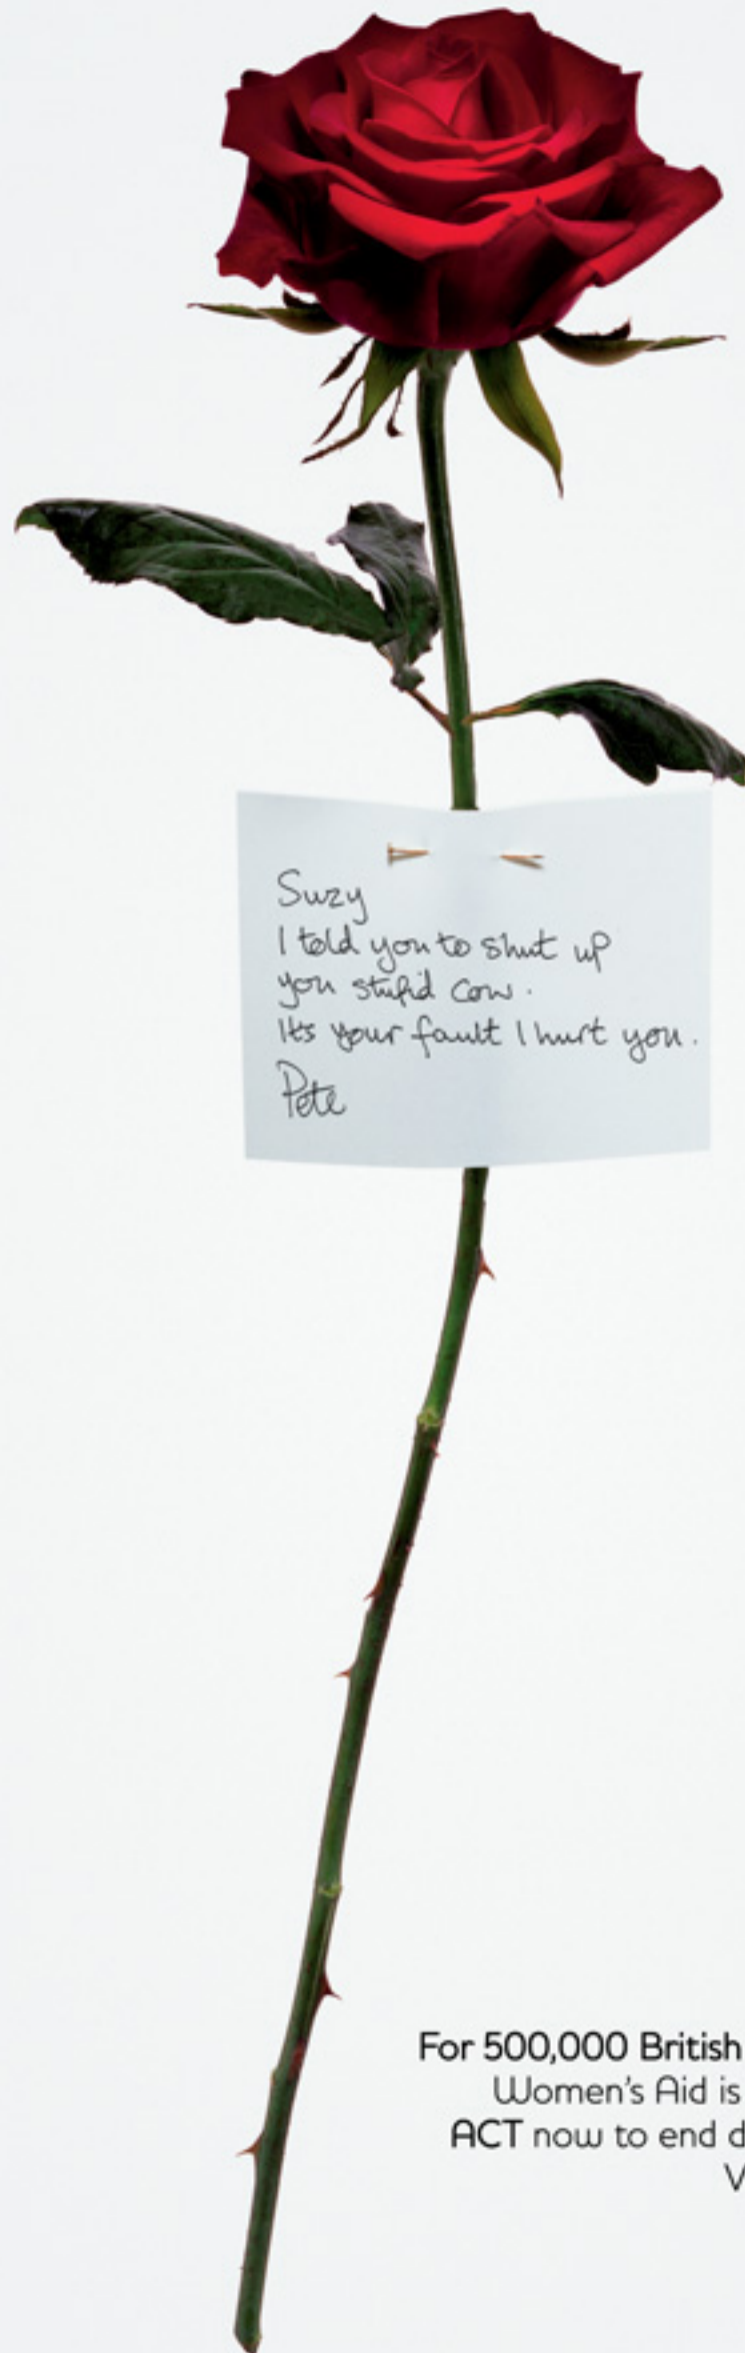 Suzy
I told you to shut up
you stupid cow.
Its your fault I hurt you.
Pete
For 500,000 British
Women's Aid is
ACT now to end